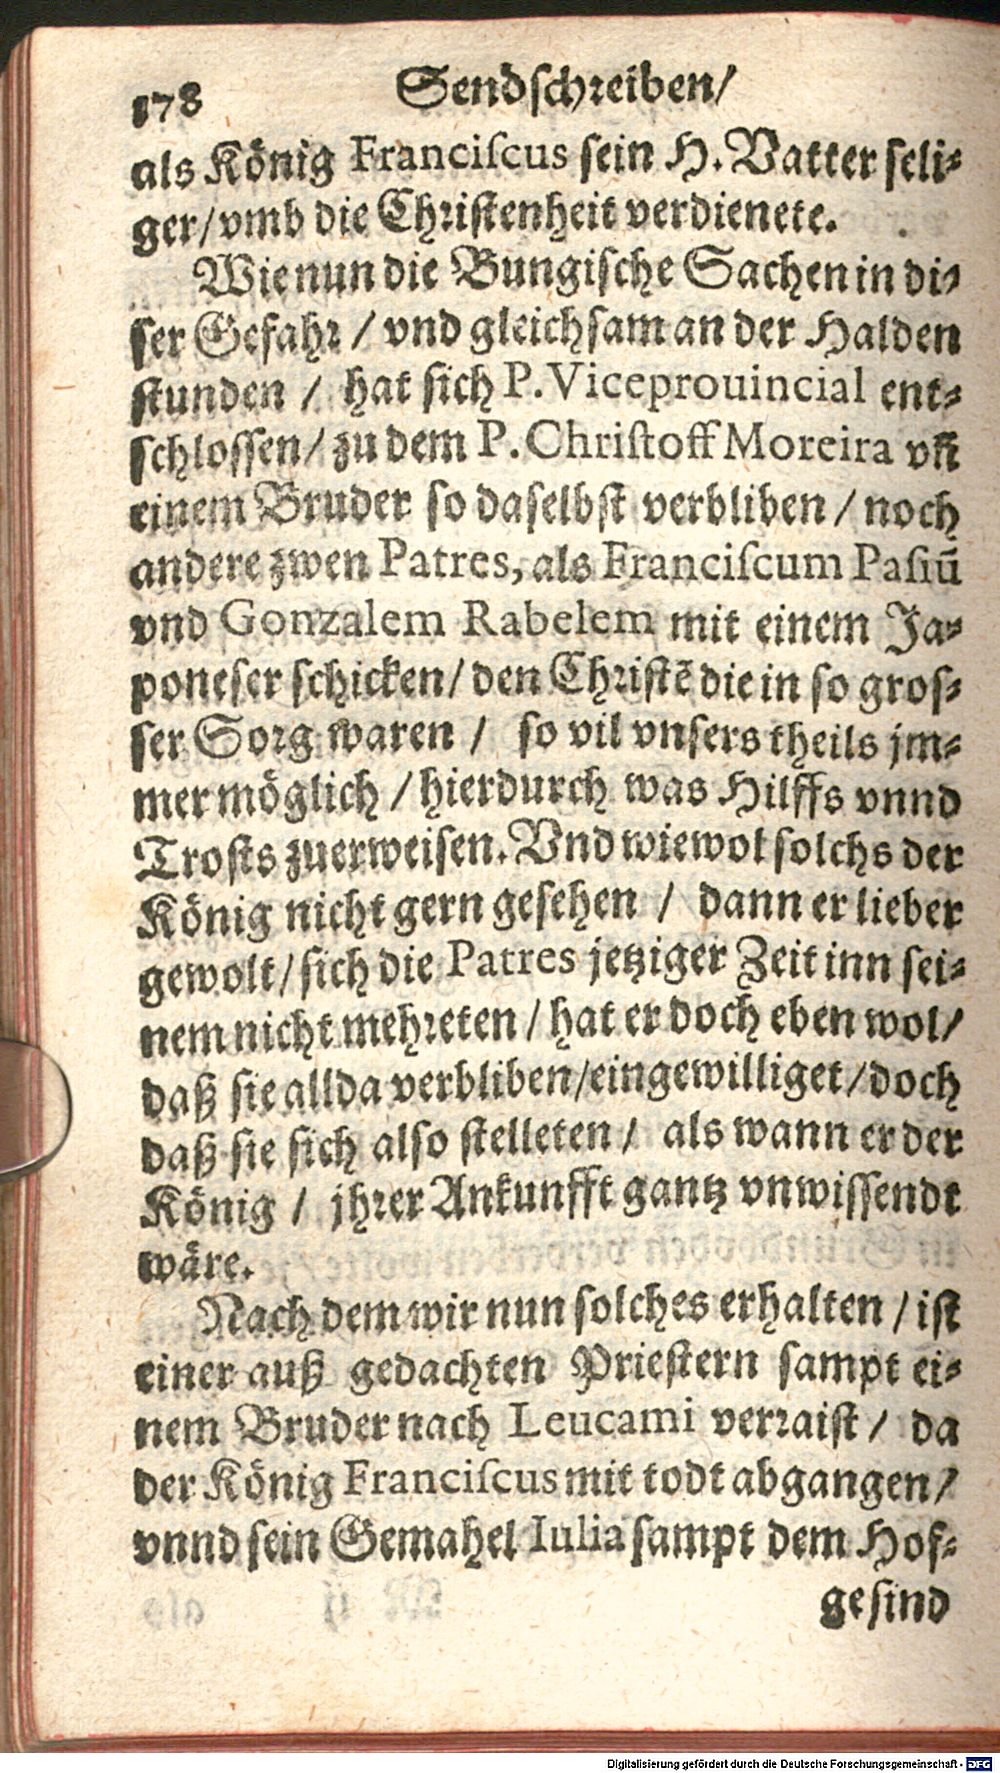 178 Sendschreiben/
als König Franciſcus sein H. Vatter seli-
ger/vmb die Christenheit verdienete.
Wie nun die Bungische Sachen in di-
ser Gefahr / vnd gleichsam an der Halden
stunden / hat sich P. Viceprouincial ent-
schlossen/ zu dem P. Chriſtoff Moreira vñ
einem Bruder so daselbst verbliben / noch
andere zwen Patres, als Franciſcum Paſiū
vnd Gonzalem Rabelem mit einem Ja-
poneser schicken/ den Christē die in so gros-
ser Sorg waren / so vil vnsers theils jm-
mer möglich / hierdurch was Hilffs vnnd
Trosts zuerweisen. Vnd wiewol solchs der
König nicht gern gesehen / dann er lieber
gewolt/ sich die Patres jetziger Zeit inn sei-
nem nicht mehreten / hat er doch eben wol/
daß sie allda verbliben/eingewilliget/doch
daß sie sich also stelleten / als wann er der
König / jhrer Ankunfft gantz vnwissendt
wäre.
Nach dem wir nun solches erhalten / ist
einer auß gedachten Priestern sampt ei-
nem Bruder nach Leucami verraist / da
der König Franciſcus mit todt abgangen/
vnnd sein Gemahel Iulia sampt dem Hof-
gesind
Digitalisierung gefördert durch die Deutsche Forschungsgemeinschaft - DFG